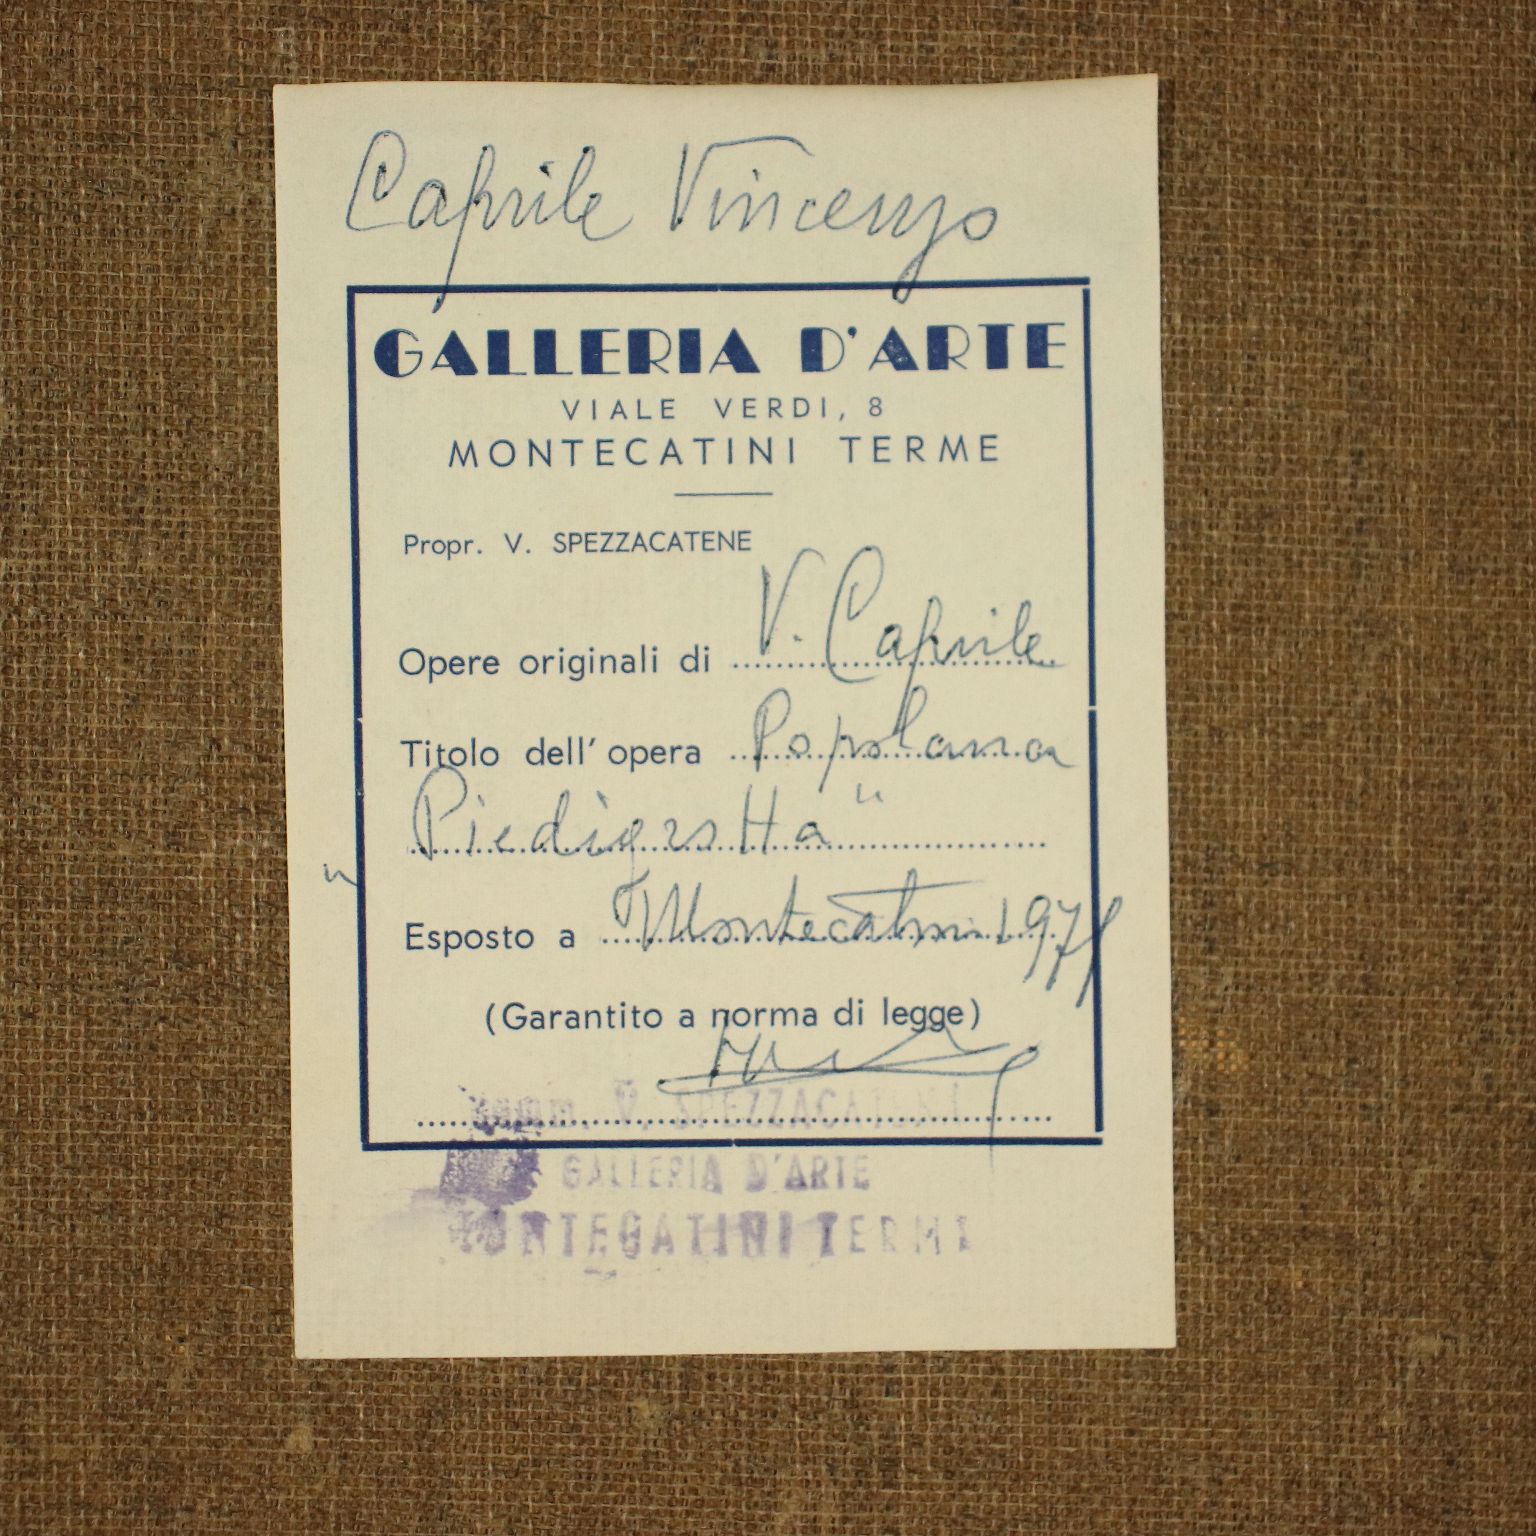 Caprile Vincenzo
GALLERIA D'ARTE
VIALE VERDI, 8
MONTECATINI TERME
Propr. V. SPEZZACATENE
Opere originali di V. Caprile
Titolo dell'opera Popolana
" Piedigrotta "
Esposto a Montecatini 1971
(Garantito a norma di legge)
V. SPEZZACATENE
GALLERIA D'ARTE
MONTECATINI TERME